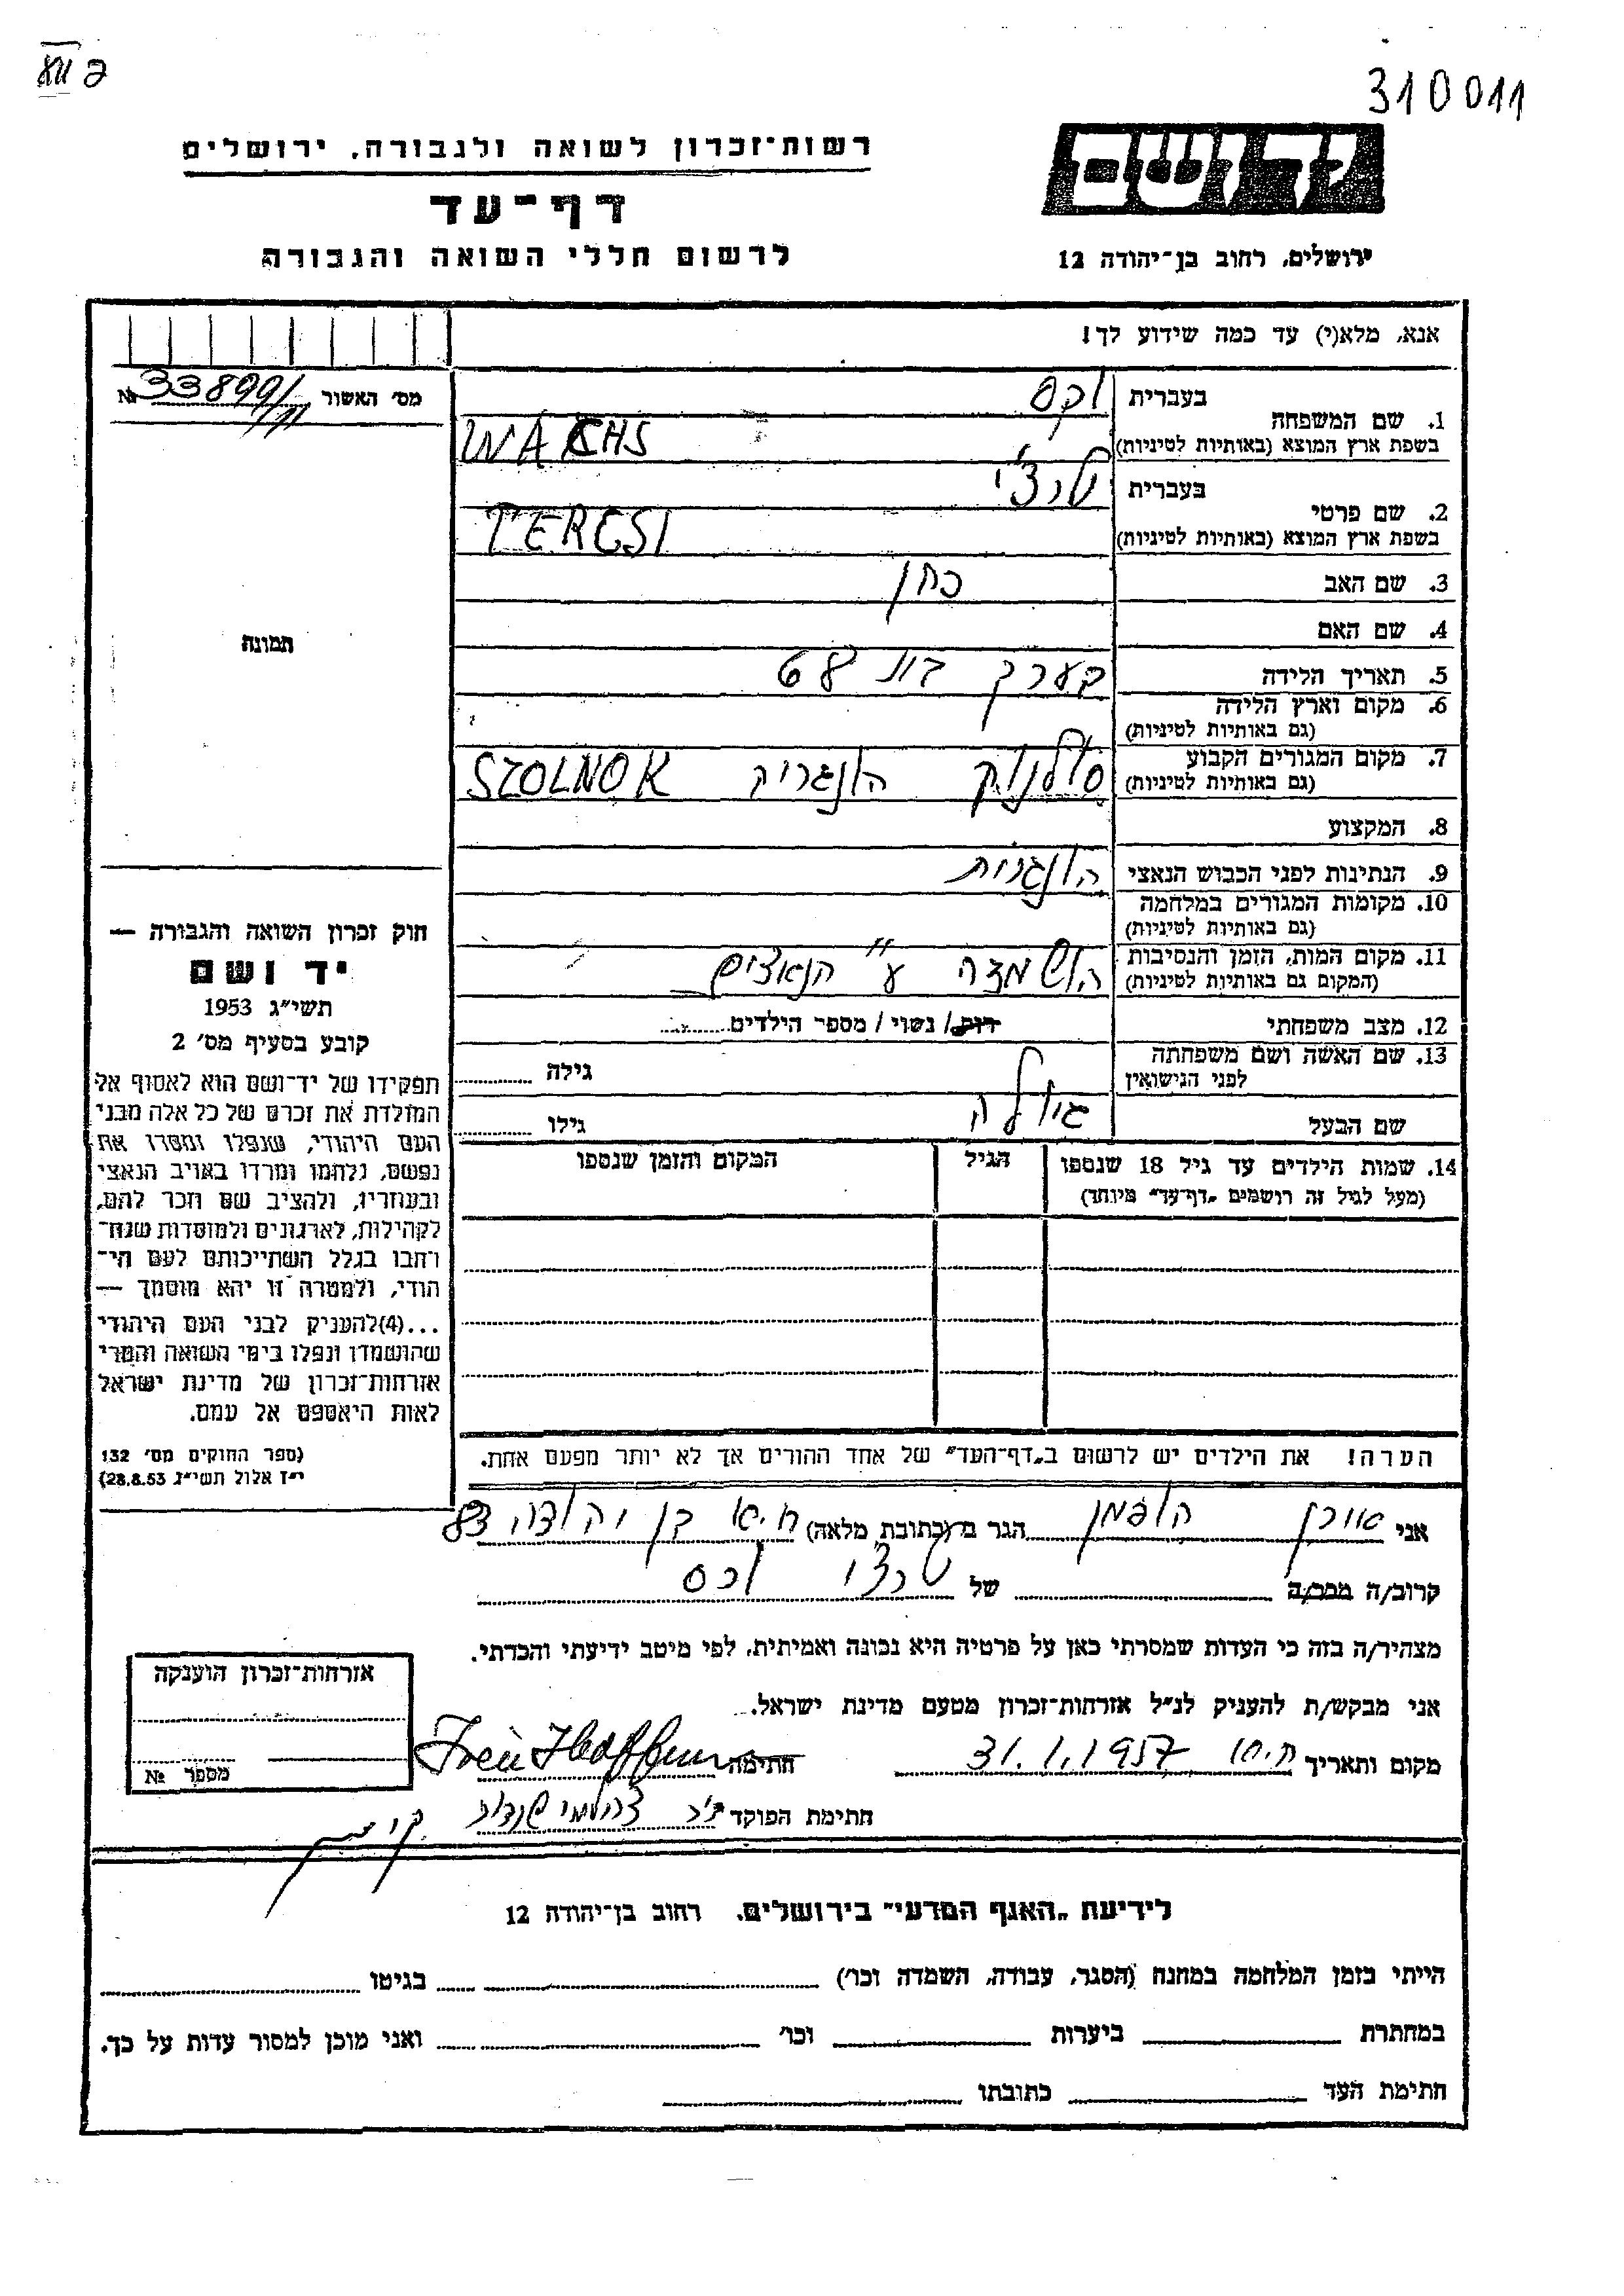 310011
רשות־זכרון לשואה ולגבורה, ירושלים
דף־עד
לרשום חללי השואה והגבורה
ירושלים, רחוב בן־יהודה 12
אנא, מלא(י) עד כמה שידוע לך!
מס׳ האשור № 33899/
בעברית וקס
1. שם המשפחה
בשפת ארץ המוצא (באותיות לטיניות) WACHS
בעברית טרצ׳י
2. שם פרטי
בשפת ארץ המוצא (באותיות לטיניות) TERCSI
3. שם האב כהן
4. שם האם
5. תאריך הלידה בערך בת 68
6. מקום וארץ הלידה
(גם באותיות לטיניות)
7. מקום המגורים הקבוע סולנוק הונגריה SZOLNOK
(גם באותיות לטיניות)
8. המקצוע
9. הנתינות לפני הכבוש הנאצי הונגרית
10. מקומות המגורים במלחמה
(גם באותיות לטיניות)
11. מקום המות, הזמן והנסיבות הושמדה ע״י הנאצים
(המקום גם באותיות לטיניות)
12. מצב משפחתי רווק / נשוי / מספר הילדים
13. שם האשה ושם משפחתה גילה
לפני הנישואין
שם הבעל גיולה גילו
14. שמות הילדים עד גיל 18 שנספו הגיל המקום והזמן שנספו
(מעל לגיל זה רושמים „דף־עד״ מיוחד)
הערה! את הילדים יש לרשום ב„דף־העד״ של אחד ההורים אך לא יותר מפעם אחת.
תמונה
חוק זכרון השואה והגבורה —
יד ושם
תשי״ג 1953
קובע בסעיף מס׳ 2
תפקידו של יד־ושם הוא לאסוף אל
המולדת את זכרם של כל אלה מבני
העם היהודי, שנפלו ומסרו את
נפשם, נלחמו ומרדו באויב הנאצי
ובעוזריו, ולהציב שם וזכר להם,
לקהילות, לארגונים ולמוסדות שנח־
רחבו בגלל השתייכותם לעם הי־
הודי, ולמטרה זו יהא מוסמך —
...(4)להעניק לבני העם היהודי
שהושמדו ונפלו בימי השואה והמרי
אזרחות־זכרון של מדינת ישראל
לאות היאספם אל עמם.
(ספר החוקים מס׳ 132
י״ז אלול תשי״ג 28.8.53)
אני אירן הופמן הגר ב (כתובת מלאה) ת.א בן יהודה 83
קרוב/ה מכר/ה של טרצ׳י וכס
מצהיר/ה בזה כי העדות שמסרתי כאן על פרטיה היא נכונה ואמיתית, לפי מיטב ידיעתי והכרתי.
אני מבקש/ת להעניק לנ״ל אזרחות־זכרון מטעם מדינת ישראל.
מקום ותאריך 31.1.1957 חתימה Iren Hoffman
חתימת הפוקד
אזרחות־זכרון הוענקה
מספר №
לידיעת „האגף המדעי״ בירושלים. רחוב בן־יהודה 12
הייתי בזמן המלחמה במחנה (הסגר, עבודה, השמדה וכו׳) בגיטו
במחתרת ביערות וכו׳ ואני מוכן למסור עדות על כך.
חתימת העד כתובתו